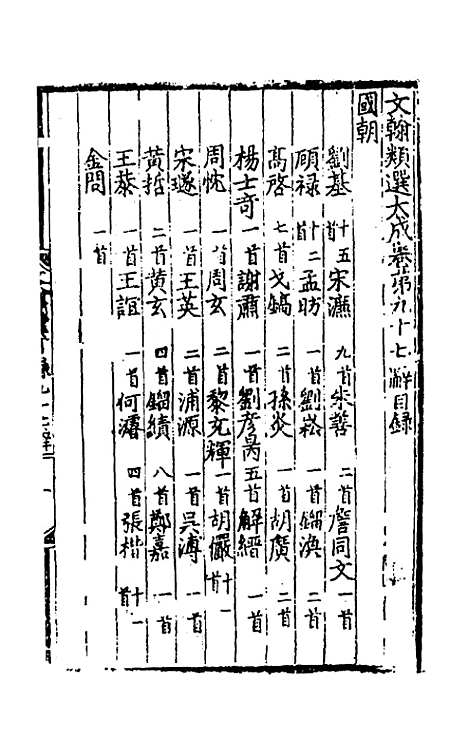 文翰類選大成卷第九十七 辭目錄
國朝
劉基 十五首 宋濂 九首 朱善 二首 詹同文 一首
顧祿 十二首 孟昉 一首 劉崧 一首 鎦渙 二首
高啓 七首 戈鎬 二首 孫炎 一首 胡廣 二首
楊士奇 一首 謝肅 一首 劉彥昺 五首 解縉 一首
周忱 一首 周玄 二首 黎充輝 一首 胡儼 十一首
宋璲 一首 王英 二首 浦源 一首 吳溥 一首
黃哲 二首 黃玄 四首 鎦績 八首 鄭嘉 一首
王恭 一首 王誼 一首 何濬 四首 張楷 十一首
金問 一首